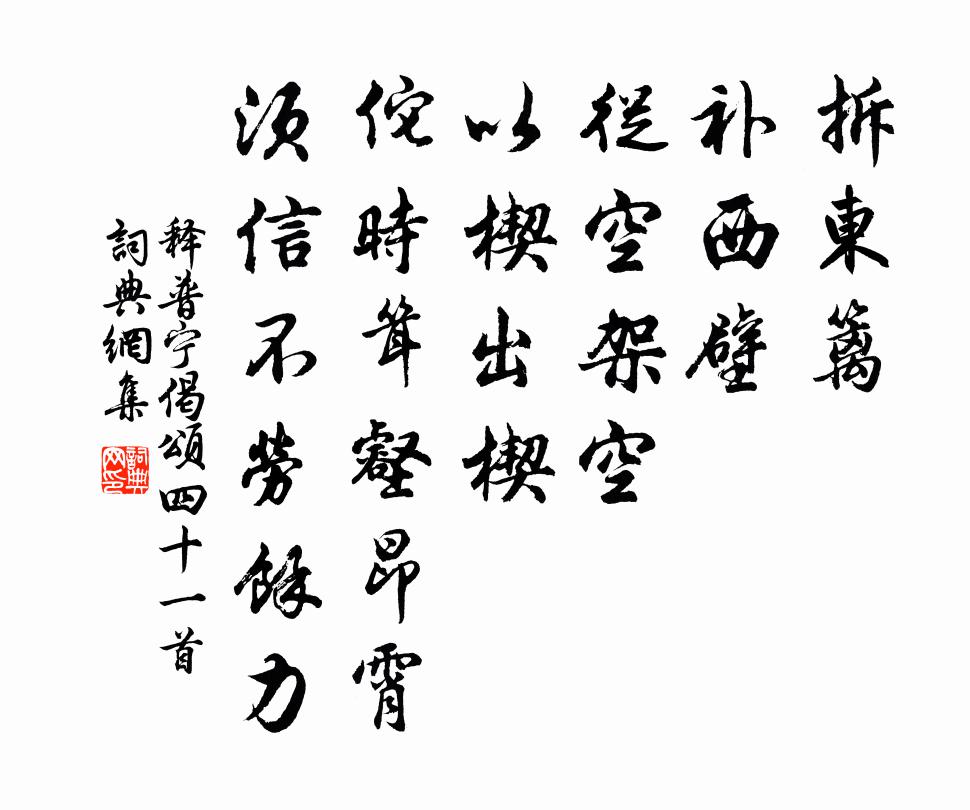 拆東籬
补西壁
從空架空
以楔出楔
侘時耸壑昂霄
須信不勞餘力
释普宁偈頌四十一首
詞典網集
詞典网印